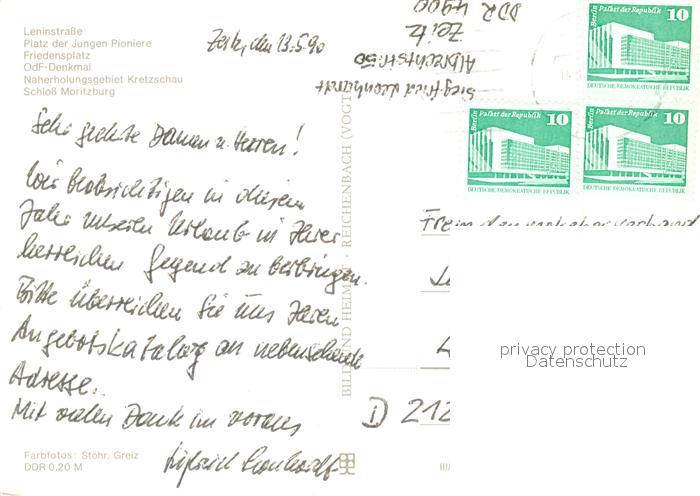 Leninstraße
Platz der Jungen Pioniere
Friedensplatz
OdF-Denkmal
Naherholungsgebiet Kretzschau
Schloß Moritzburg
Zeitz, den 13.5.90
Siegfried Leonhardt
Albrechtstr. 50
Zeitz
DDR 4900
Berlin Palast der Republik 10
DEUTSCHE DEMOKRATISCHE REPUBLIK
Berlin Palast der Republik 10
DEUTSCHE DEMOKRATISCHE REPUBLIK
Berlin Palast der Republik 10
DEUTSCHE DEMOKRATISCHE REPUBLIK
Sehr geehrte Damen u. Herren!
Wir beabsichtigen in diesem
Jahr unseren Urlaub in Ihrer
herrlichen Gegend zu verbringen.
Bitte überreichen Sie uns Ihren
Angebotskatalog an nebenstehende
Adresse.
Mit vielen Dank im voraus
Siegfried Leonhardt
Fremdenverkehrsverband
D 212
BILD UND HEIMAT REICHENBACH (VOGT
privacy protection
Datenschutz
Farbfotos: Stöhr, Greiz
DDR 0,20 M